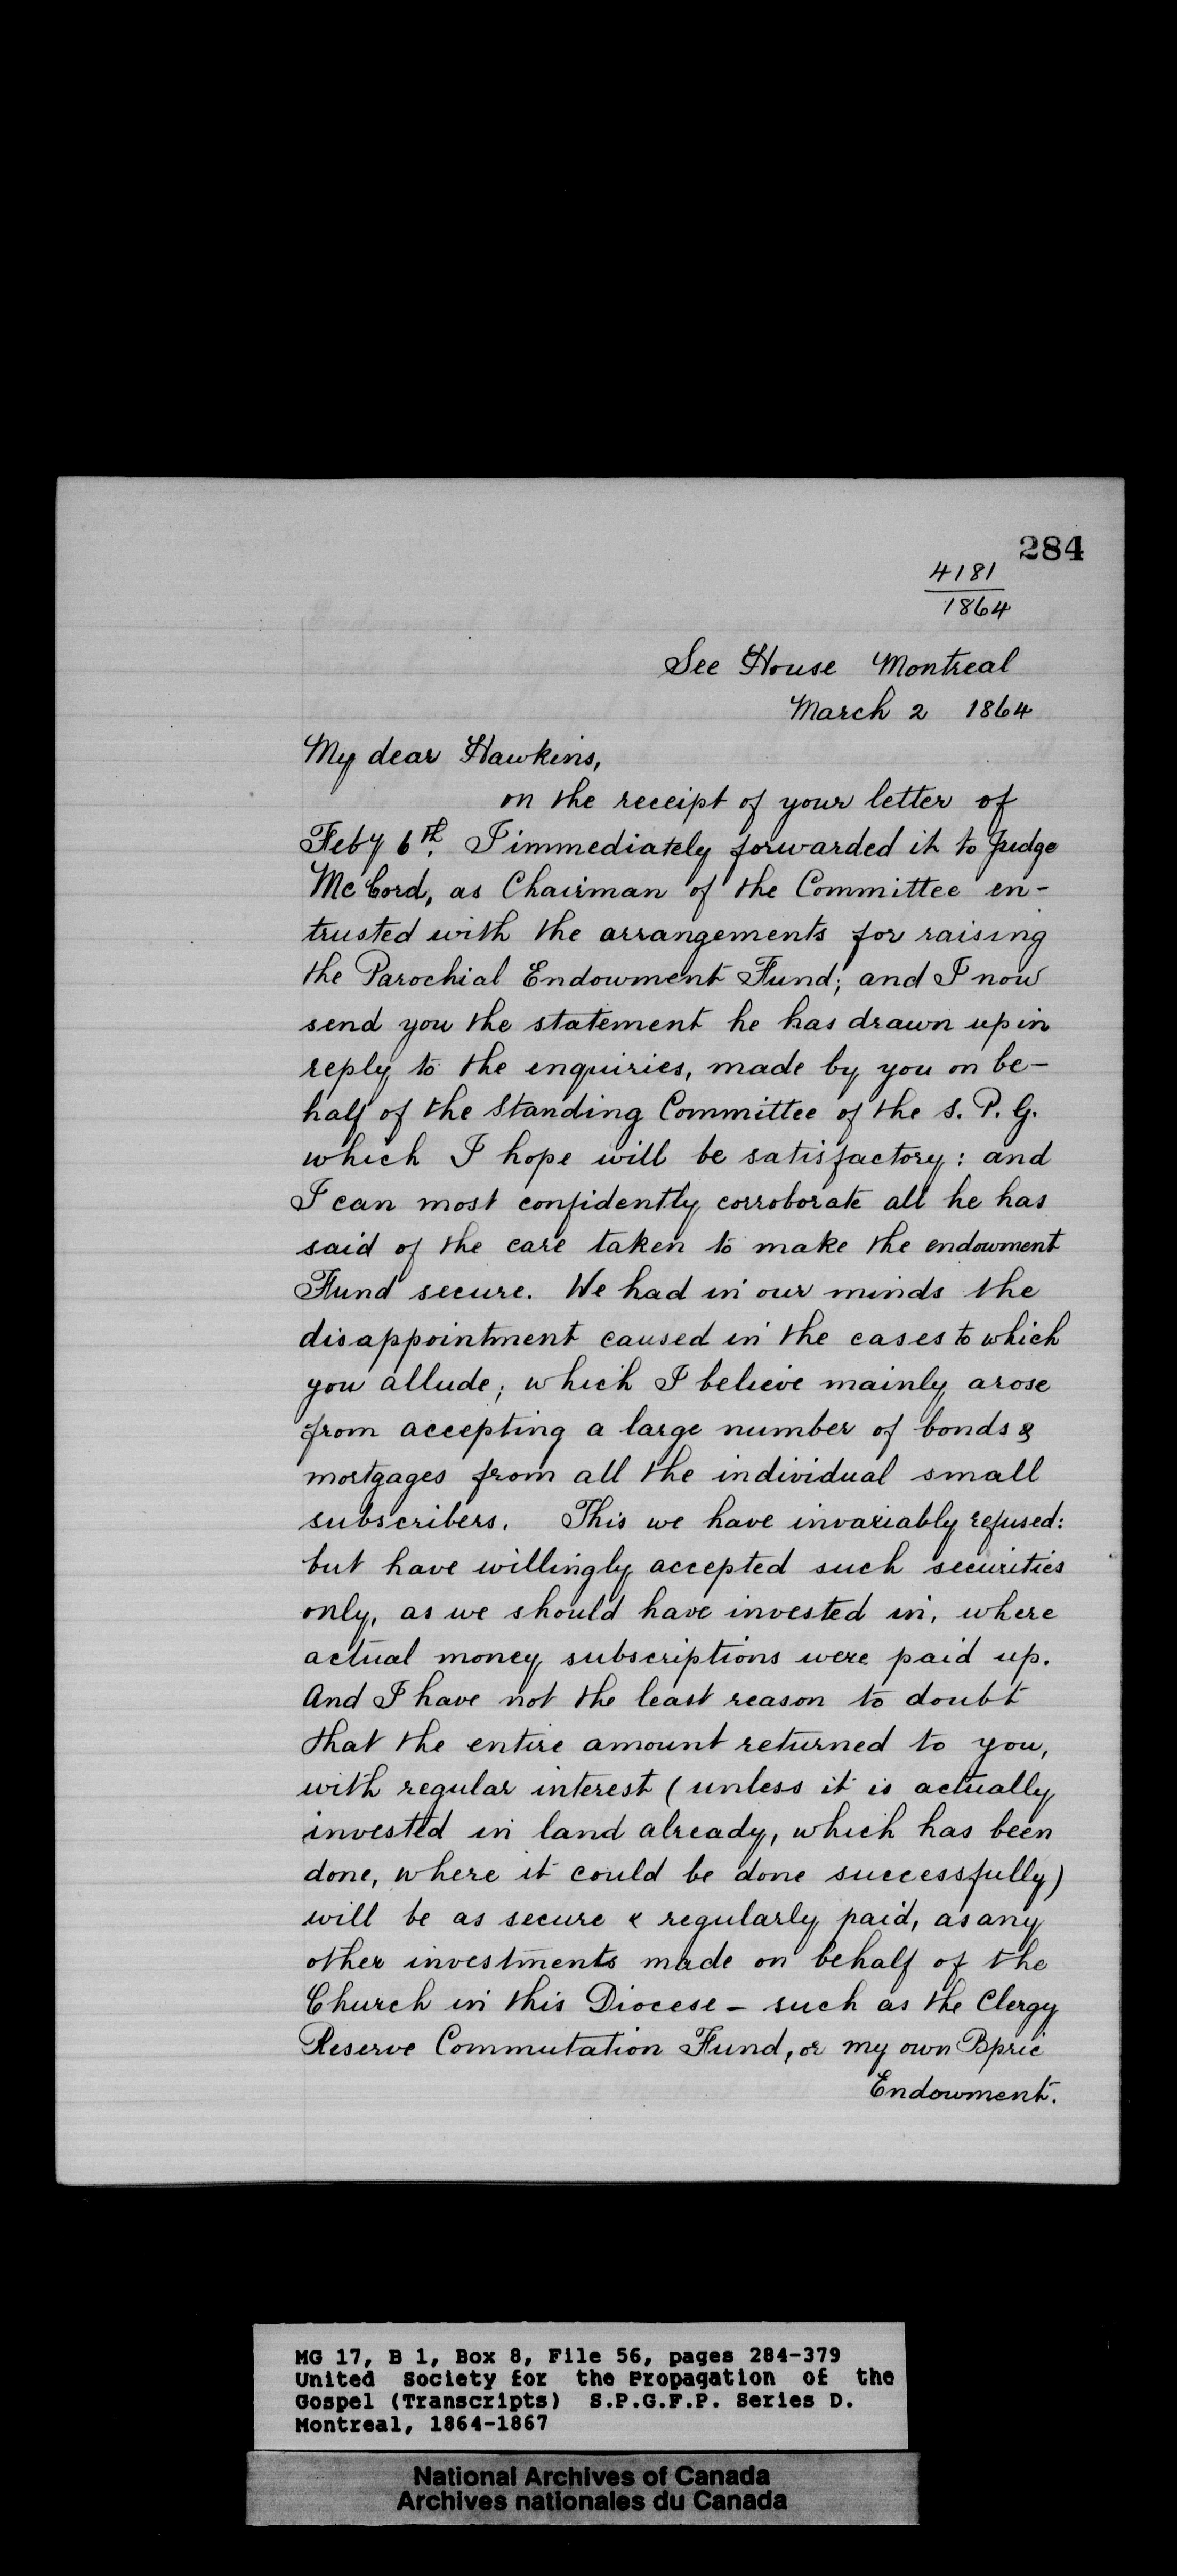 284
4181
1864
See House Montreal
March 2 1864
My dear Hawkins,
on the receipt of your letter of
Feby 6th. I immediately forwarded it to Judge
McCord, as Chairman of the Committee en-
trusted with the arrangements for raising
the Parochial Endowment Fund; and I now
send you the statement he has drawn up in
reply to the enquiries, made by you on be-
half of the Standing Committee of the S. P. G.
which I hope will be satisfactory: and
I can most confidently corroborate all he has
said of the care taken to make the endowment
Fund secure. We had in our minds the
disappointment caused in the cases to which
you allude; which I believe mainly arose
from accepting a large number of bonds &
mortgages from all the individual small
subscribers. This we have invariably refused:
but have willingly accepted such securities
only, as we should have invested in, where
actual money subscriptions were paid up.
And I have not the least reason to doubt
that the entire amount returned to you,
with regular interest (unless it is actually
invested in land already, which has been
done, where it could be done successfully)
will be as secure & regularly paid, as any
other investments made on behalf of the
Church in this Diocese - such as the Clergy
Reserve Commutation Fund, or my own Bpric
Endowment.
MG 17, B 1, Box 8, File 56, pages 284-379
United Society for the Propagation of the
Gospel (Transcripts) S.P.G.F.P. Series D.
Montreal, 1864-1867
National Archives of Canada
Archives nationales du Canada